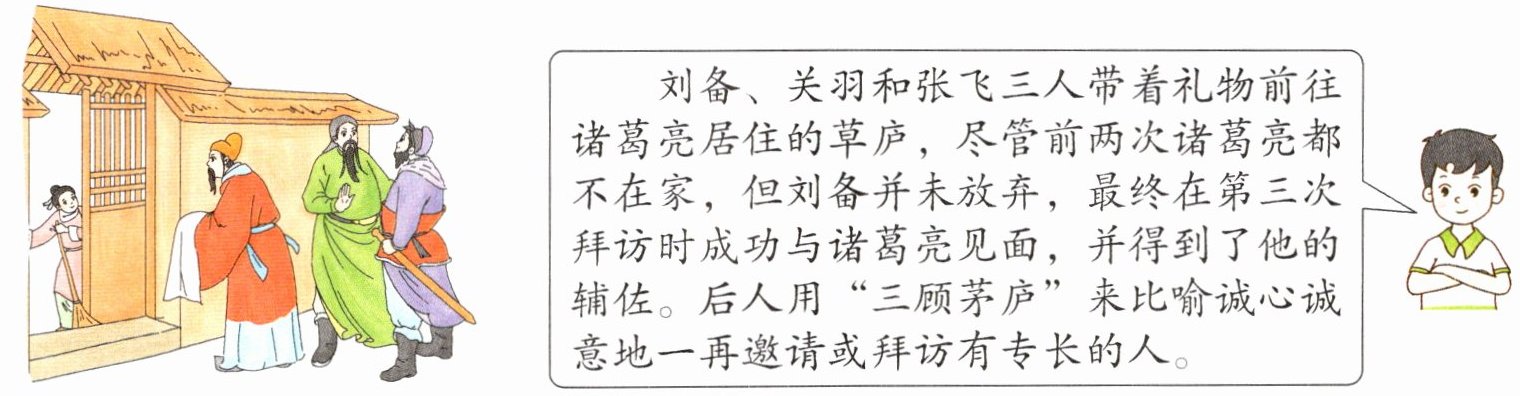 刘备、关羽和张飞三人带着礼物前往
诸葛亮居住的草庐，尽管前两次诸葛亮都
不在家，但刘备并未放弃，最终在第三次
拜访时成功与诸葛亮见面，并得到了他的
辅佐。后人用“三顾茅庐”来比喻诚心诚
意地一再邀请或拜访有专长的人。